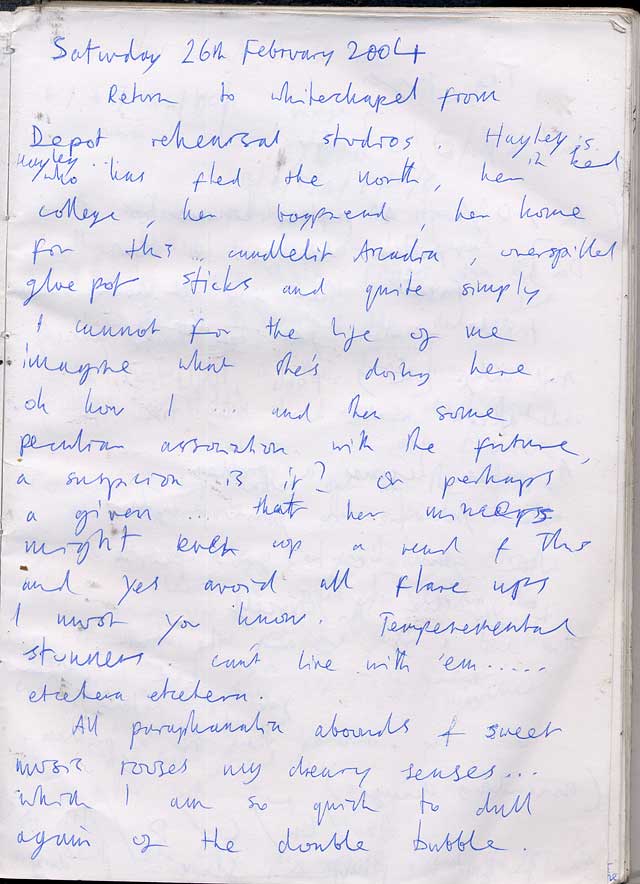 Saturday 26th February 2004
Return to whitechapel from
Depot rehearsal studios. Hayley is
Hayley in bed
who has fled the north, her
college, her boyfriend, her home
for this .. candlelit Arcadia, overspilled
glue pot sticks and quite simply
I cannot for the life of me
imagine what she's doing here.
oh how I ... and then some
peculiar association with the future,
a suspicion is it? or perhaps
a given ... that her
might even up a read of this
and yes avoid all flare ups
I must you know. Temperemental
stunners. can't live with 'em.....
etcetera etcetera.
All paraphanalia abounds & sweet
music rouses my dreary senses...
which I am so quick to dull
again of the double bubble.